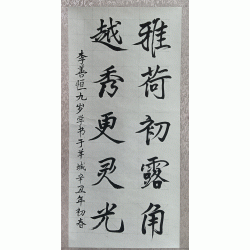 雅荷初露角
越秀更灵光
李善恒九岁学书于羊城辛丑年初春